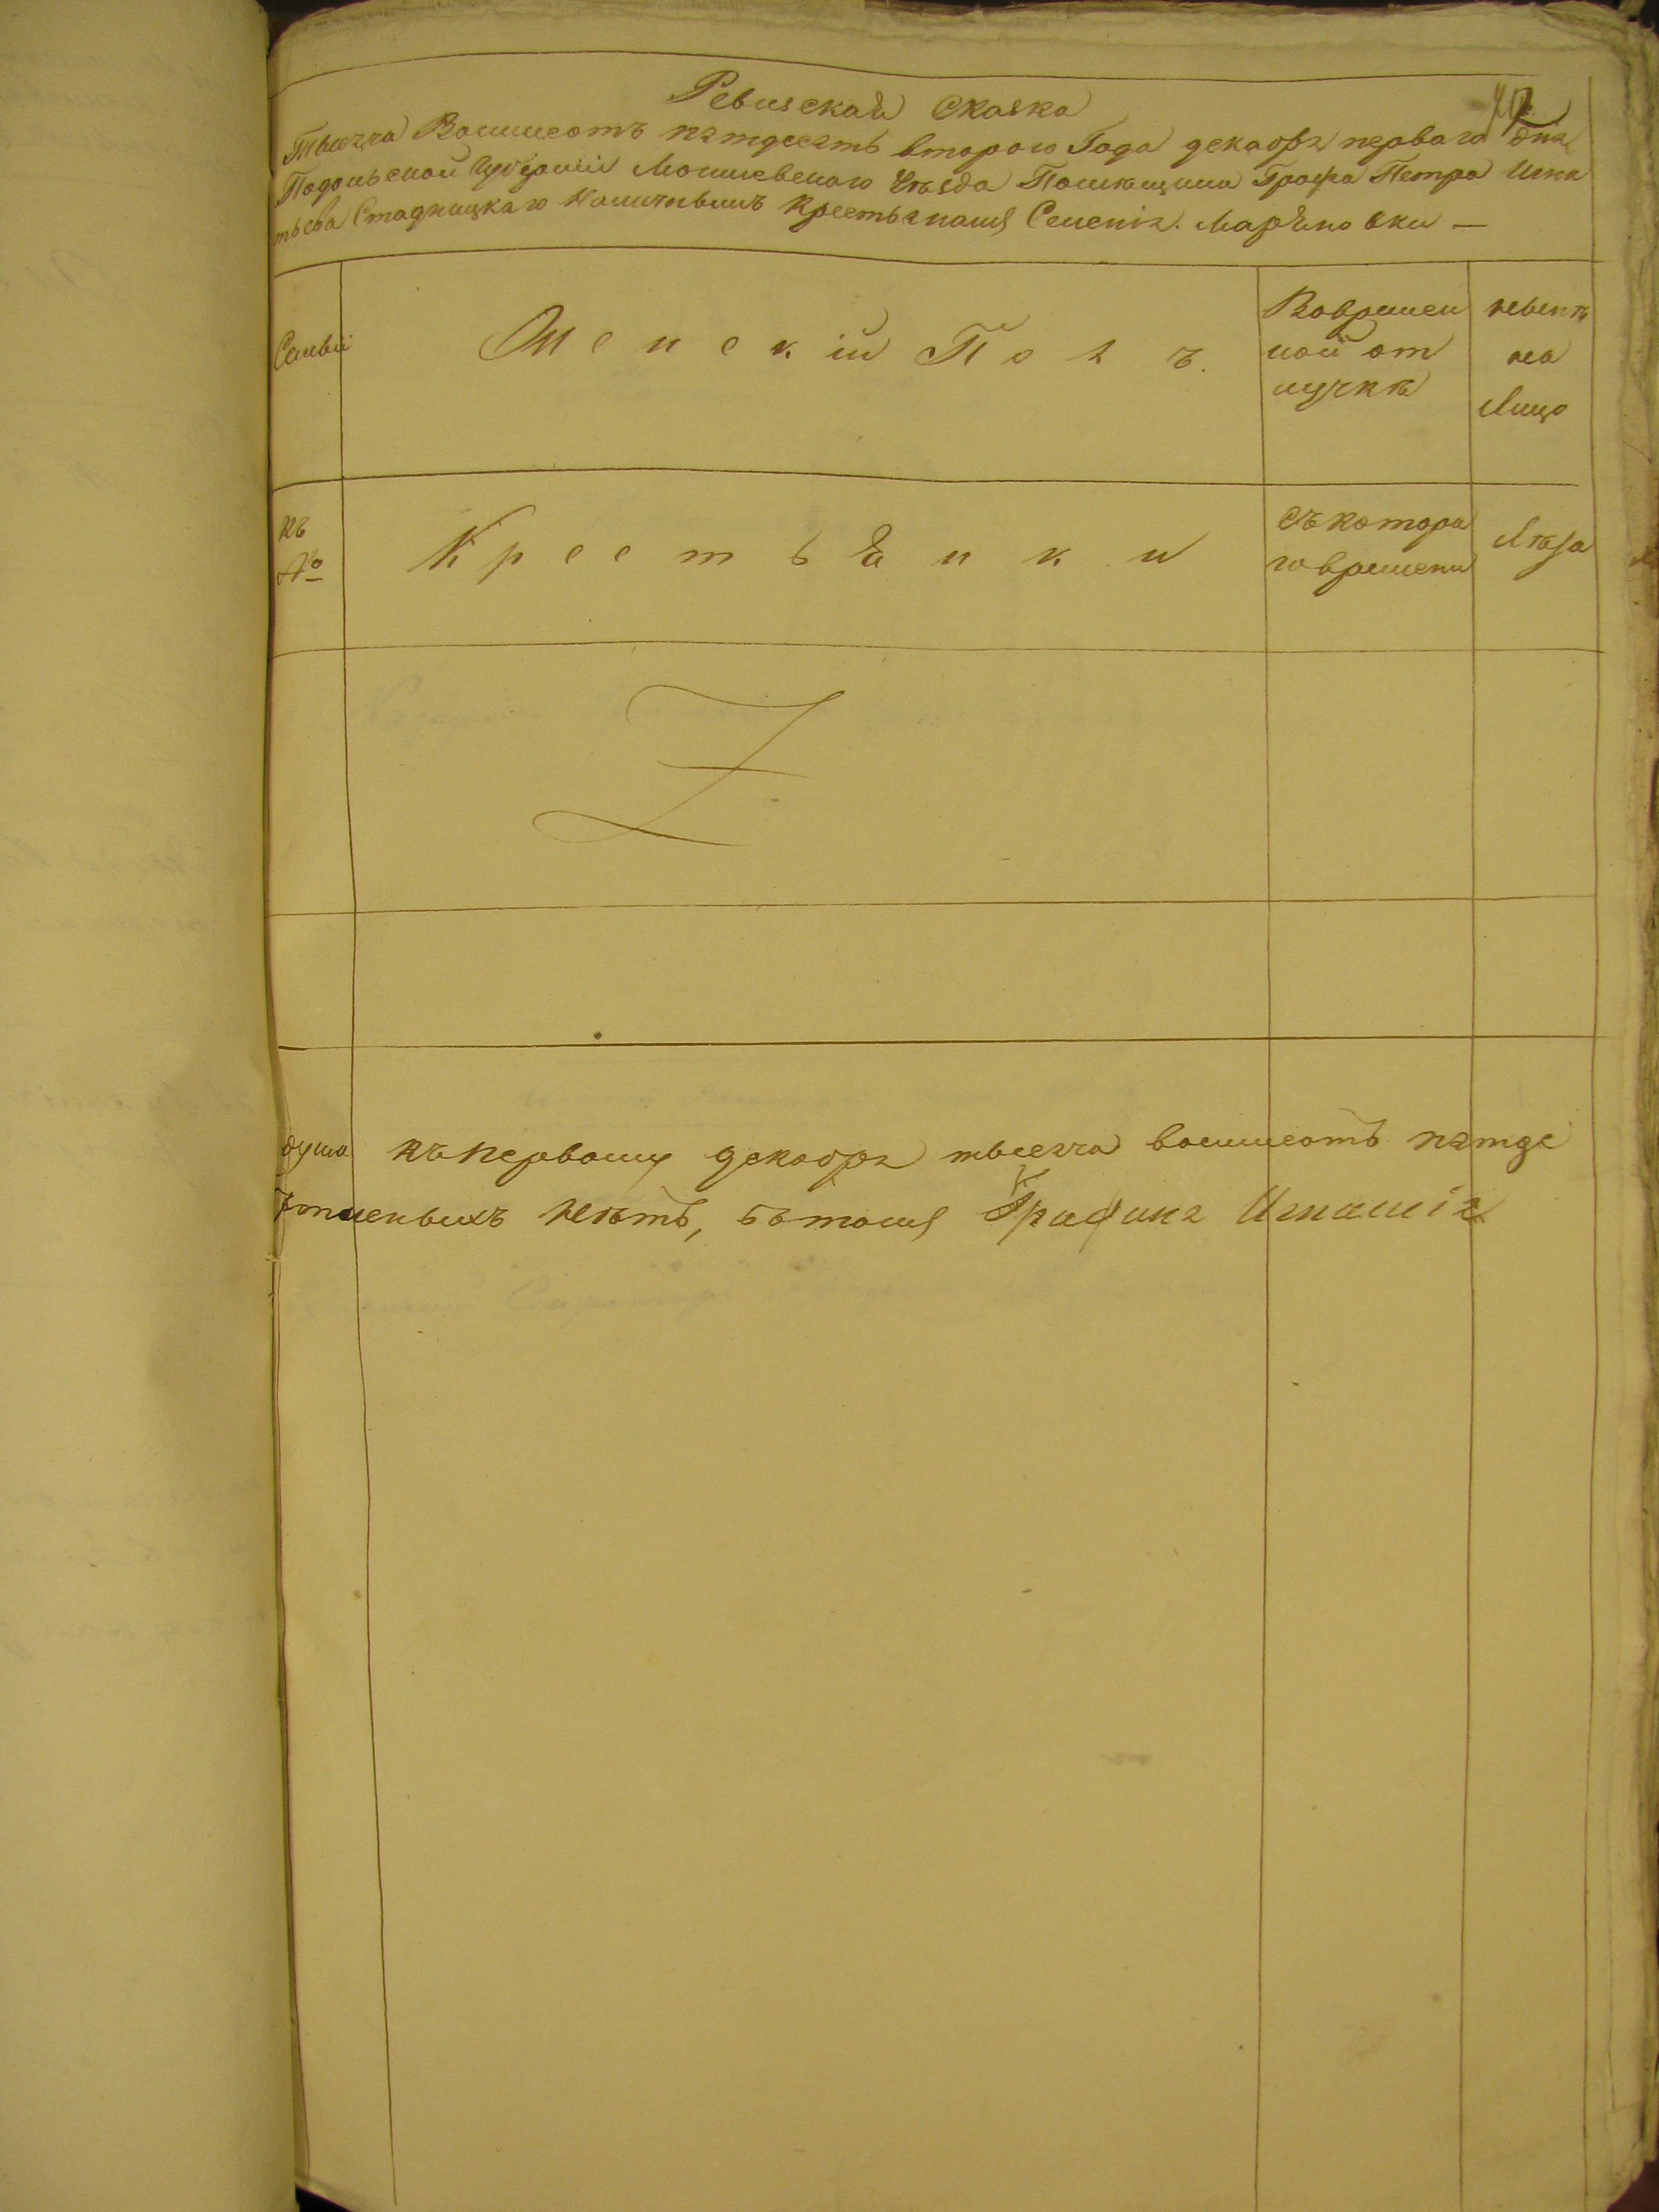 Ревизская Сказка
Тысяча Восимсотъ пятдесятъ второго Года декабря первого дня
Подольской Губерніи Могилевского Уѣзда Помѣщика Графа Петра Игна
тьева Стадницкаго Крестьянамъ Селенія Марьяновки —
Семьи
Женскій Полъ.
Вовремен
ной от
лучкѣ
нынѣ
на
Лицо
къ
№
Крестьянки
Съ котора
го времени
Лѣта
душа къ первому декабря тысяча восимсотъ пятде
нѣтъ, Графиня